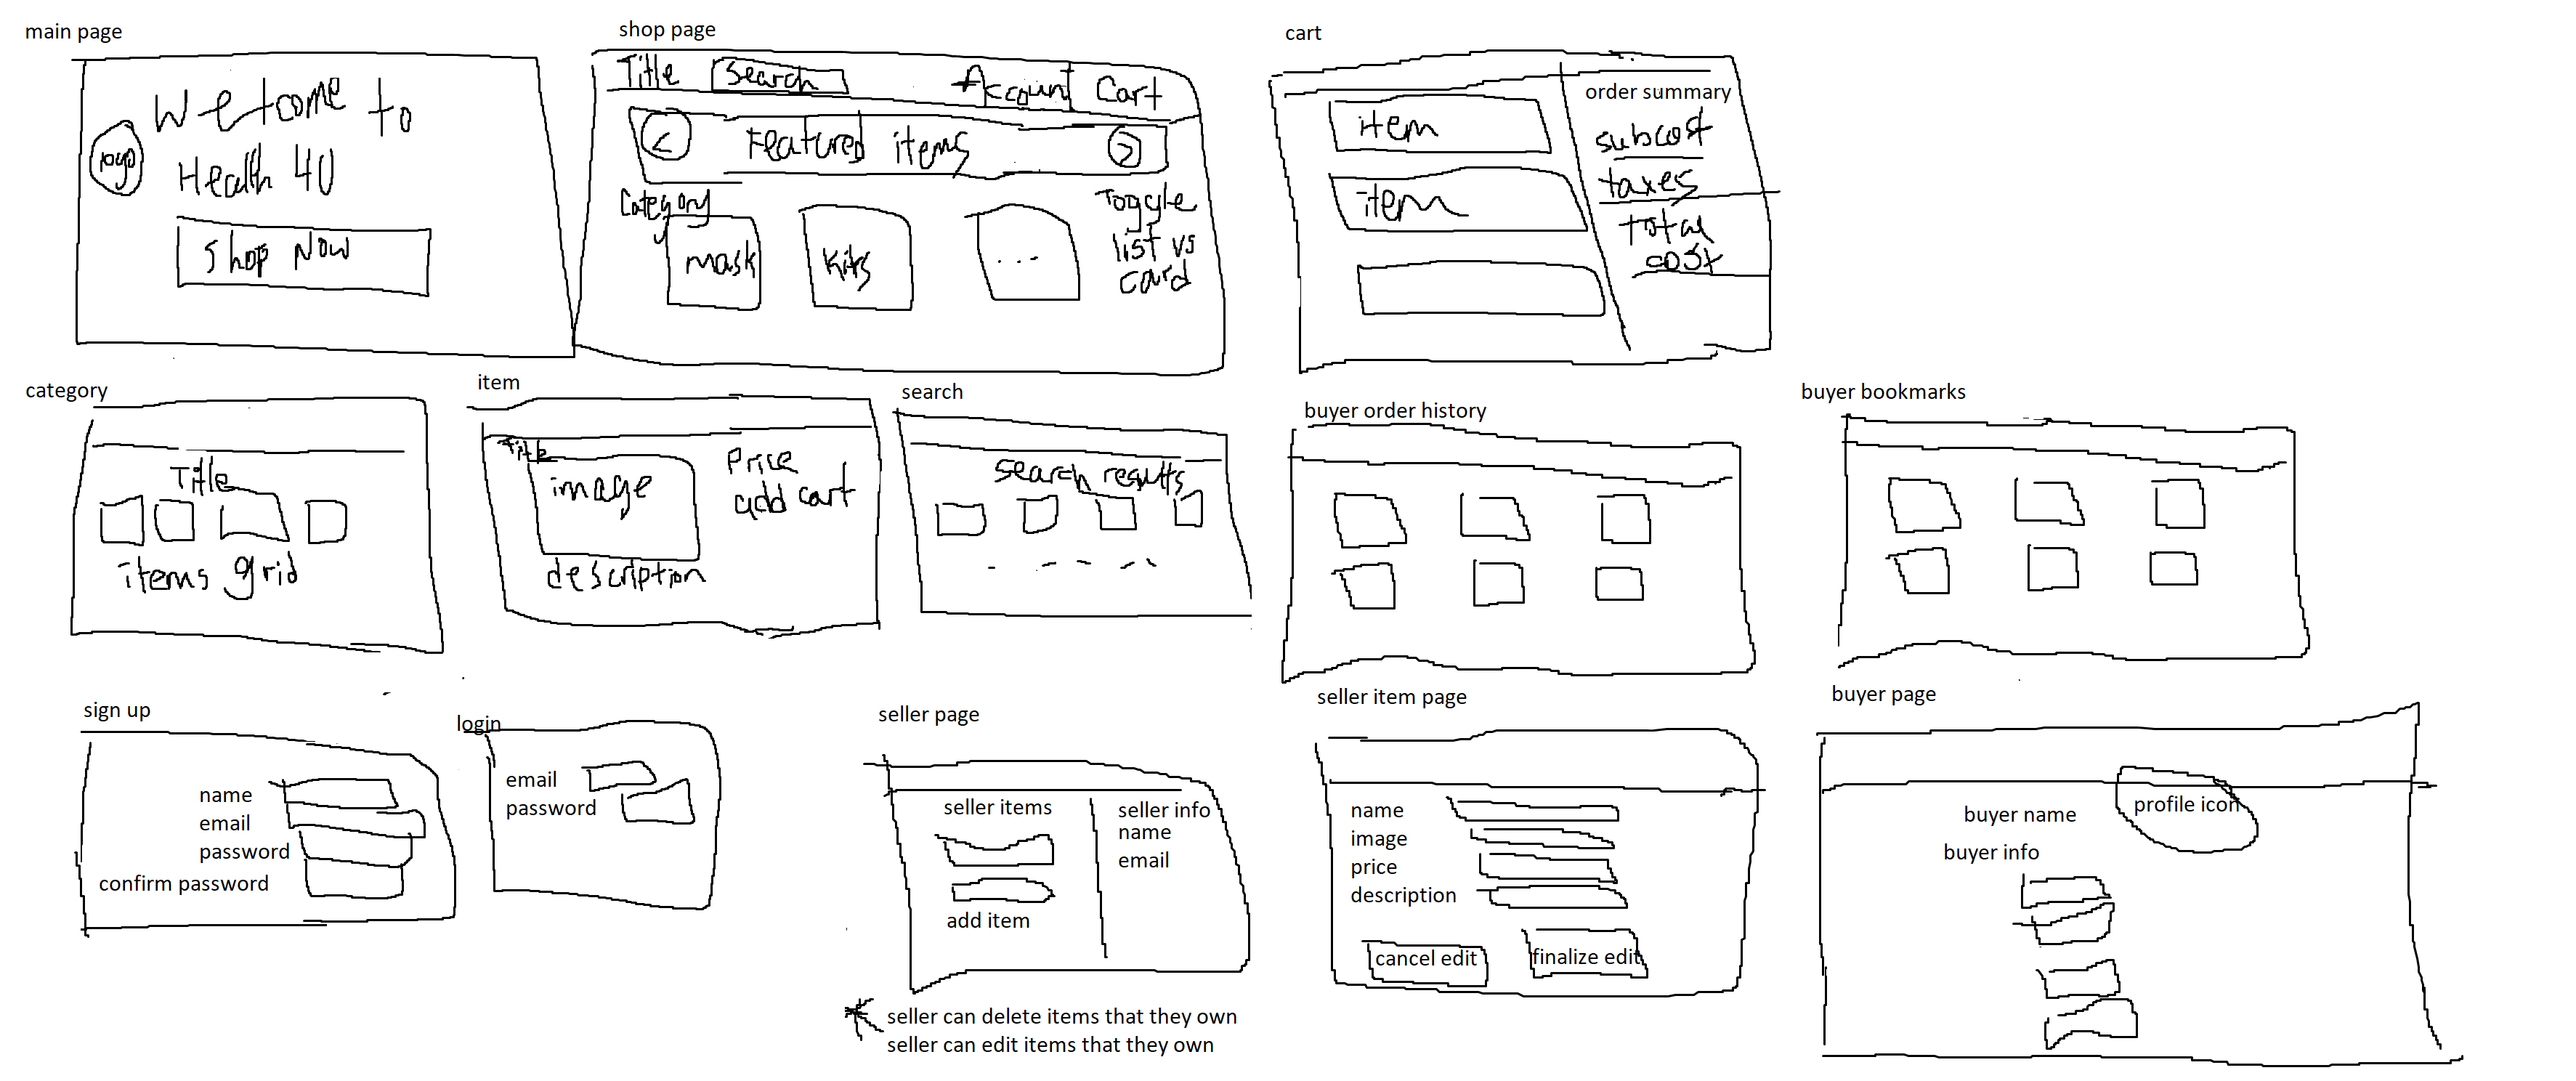 main page
Welcome to
logo
Health 4U
Shop Now
shop page
Title
Search
Account
Cart
<
Featured items
>
Category
mask
Kits
...
Toggle
list vs
card
cart
item
item
order summary
subcost
taxes
total
cost
category
Title
items grid
item
Title
image
Price
add cart
description
search
search results
buyer order history
buyer bookmarks
sign up
name
email
password
confirm password
login
email
password
seller page
seller items
add item
seller info
name
email
seller can delete items that they own
seller can edit items that they own
seller item page
name
image
price
description
cancel edit
finalize edit
buyer page
profile icon
buyer name
buyer info